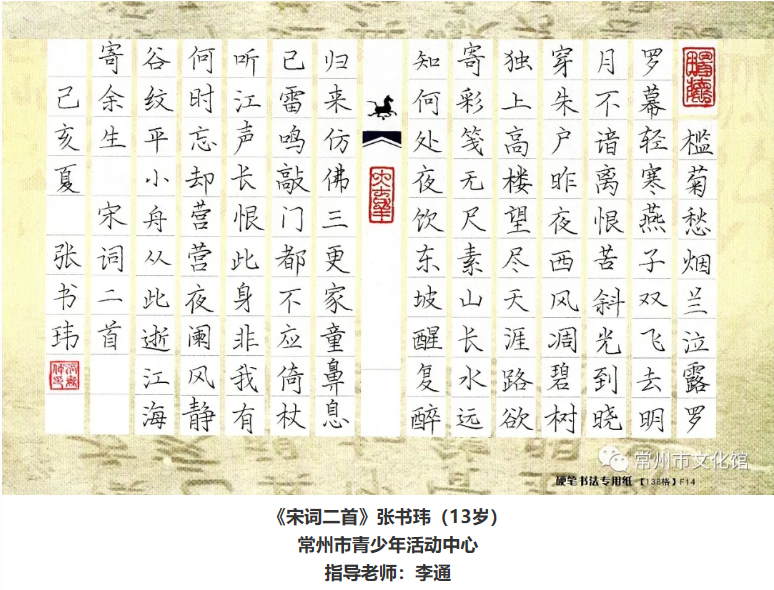 槛菊愁烟兰泣露罗
罗幕轻寒燕子双飞去明
月不谙离恨苦斜光到晓
穿朱户昨夜西风凋碧树
独上高楼望尽天涯路欲
寄彩笺无尺素山长水远
知何处夜饮东坡醒复醉
归来仿佛三更家童鼻息
已雷鸣敲门都不应倚杖
听江声长恨此身非我有
何时忘却营营夜阑风静
谷纹平小舟从此逝江海
寄余生 宋词二首
己亥夏 张书玮
常州市文化馆
硬笔书法专用纸【138格】F14
《宋词二首》张书玮（13岁）
常州市青少年活动中心
指导老师：李通